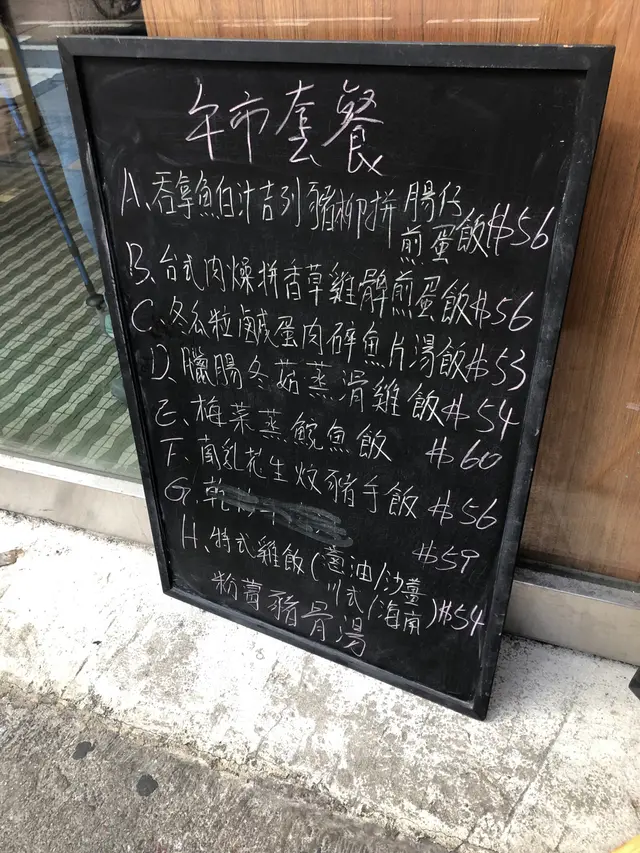 午市套餐
A、吞拿魚白汁吉列豬柳拼腸仔煎蛋飯$56
B、台式肉燥拼香草雞髀煎蛋飯$56
C、冬瓜粒鹹蛋肉碎魚片湯飯$53
D、臘腸冬菇蒸滑雞飯$54
E、梅菜蒸鯇魚飯 $60
F、南乳花生炆豬手飯 $56
G、乾 $59
H、特式雞飯(蔥油/沙薑/川式/海南)$54
粉葛豬骨湯